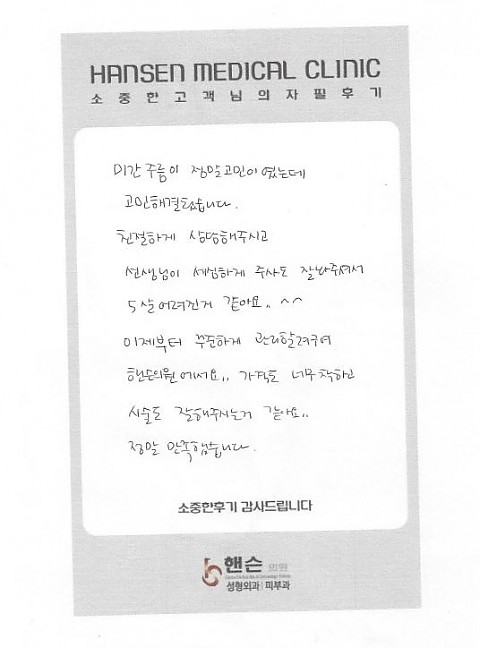 HANSEN MEDICAL CLINIC
소중한고객님의자필후기
미간주름이 정말고민이였는데
고민해결됐습니다.
친절하게 상담해주시고
선생님이 세심하게 주사도 잘놔주셔서
5살어려진거 같아요.. ^^
이제부터 꾸준하게 관리할려구여
핸슨의원에서요.. 가격도 너무착하고
시술도 잘해주시는거 같아요..
정말 만족합니다.
소중한후기 감사드립니다
핸슨 의원
성형외과 | 피부과